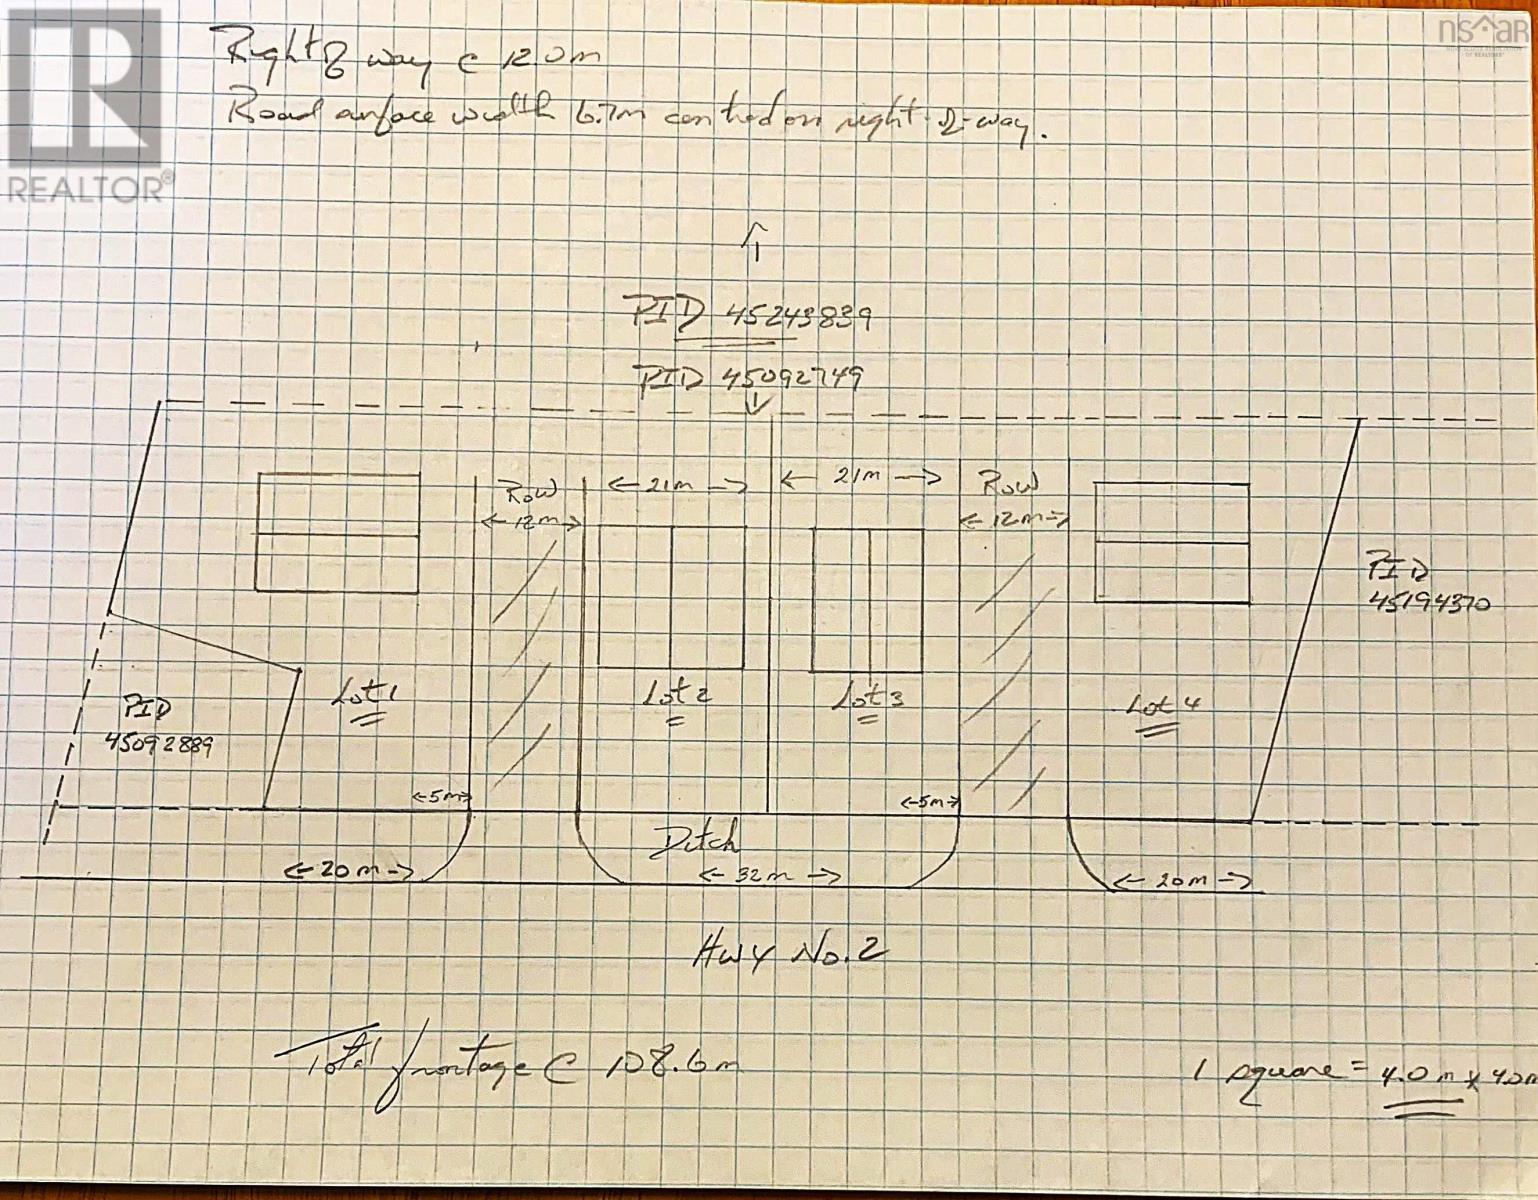 REALTOR®
nsaar
Right of way @ 12.0m
Road surface width 6.7m centred on right-of-way.
PID 45243839
PID 45092749
Row
21m
21m
Row
12m
12m
PID
45194370
Lot 1
Lot 2
Lot 3
Lot 4
PID
45092889
5m
5m
Ditch
20m
32m
20m
Hwy No.2
Total frontage @ 108.6m
1 square = 4.0m x 4.0m